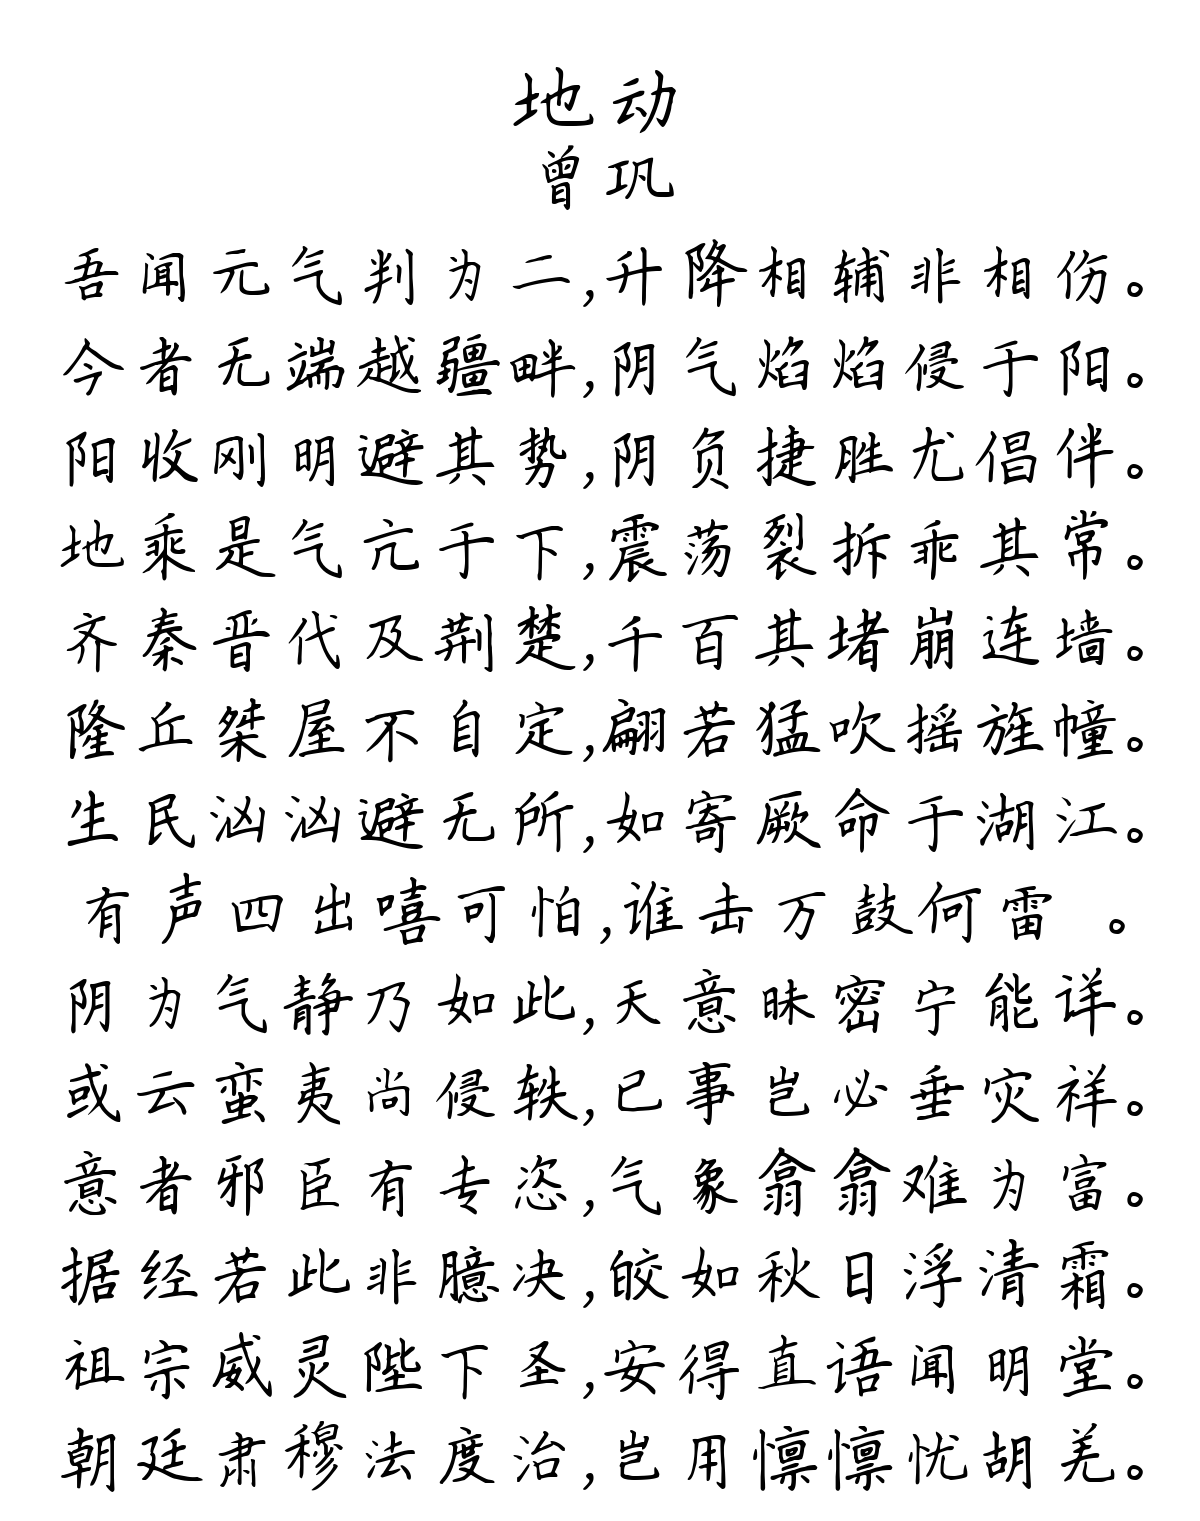 地动
曾巩
吾闻元气判为二,升降相辅非相伤。
今者无端越疆畔,阴气焰焰侵于阳。
阳收刚明避其势,阴负捷胜尤倡伴。
地乘是气亢于下,震荡裂拆乖其常。
齐秦晋代及荆楚,千百其堵崩连墙。
隆丘桀屋不自定,翩若猛吹摇旌幢。
生民汹汹避无所,如寄厥命于湖江。
有声四出嘻可怕,谁击万鼓何雷 。
阴为气静乃如此,天意昧密宁能详。
或云蛮夷尚侵轶,已事岂必垂灾祥。
意者邪臣有专恣,气象翕翕难为富。
据经若此非臆决,皎如秋日浮清霜。
祖宗威灵陛下圣,安得直语闻明堂。
朝廷肃穆法度治,岂用懔懔忧胡羌。